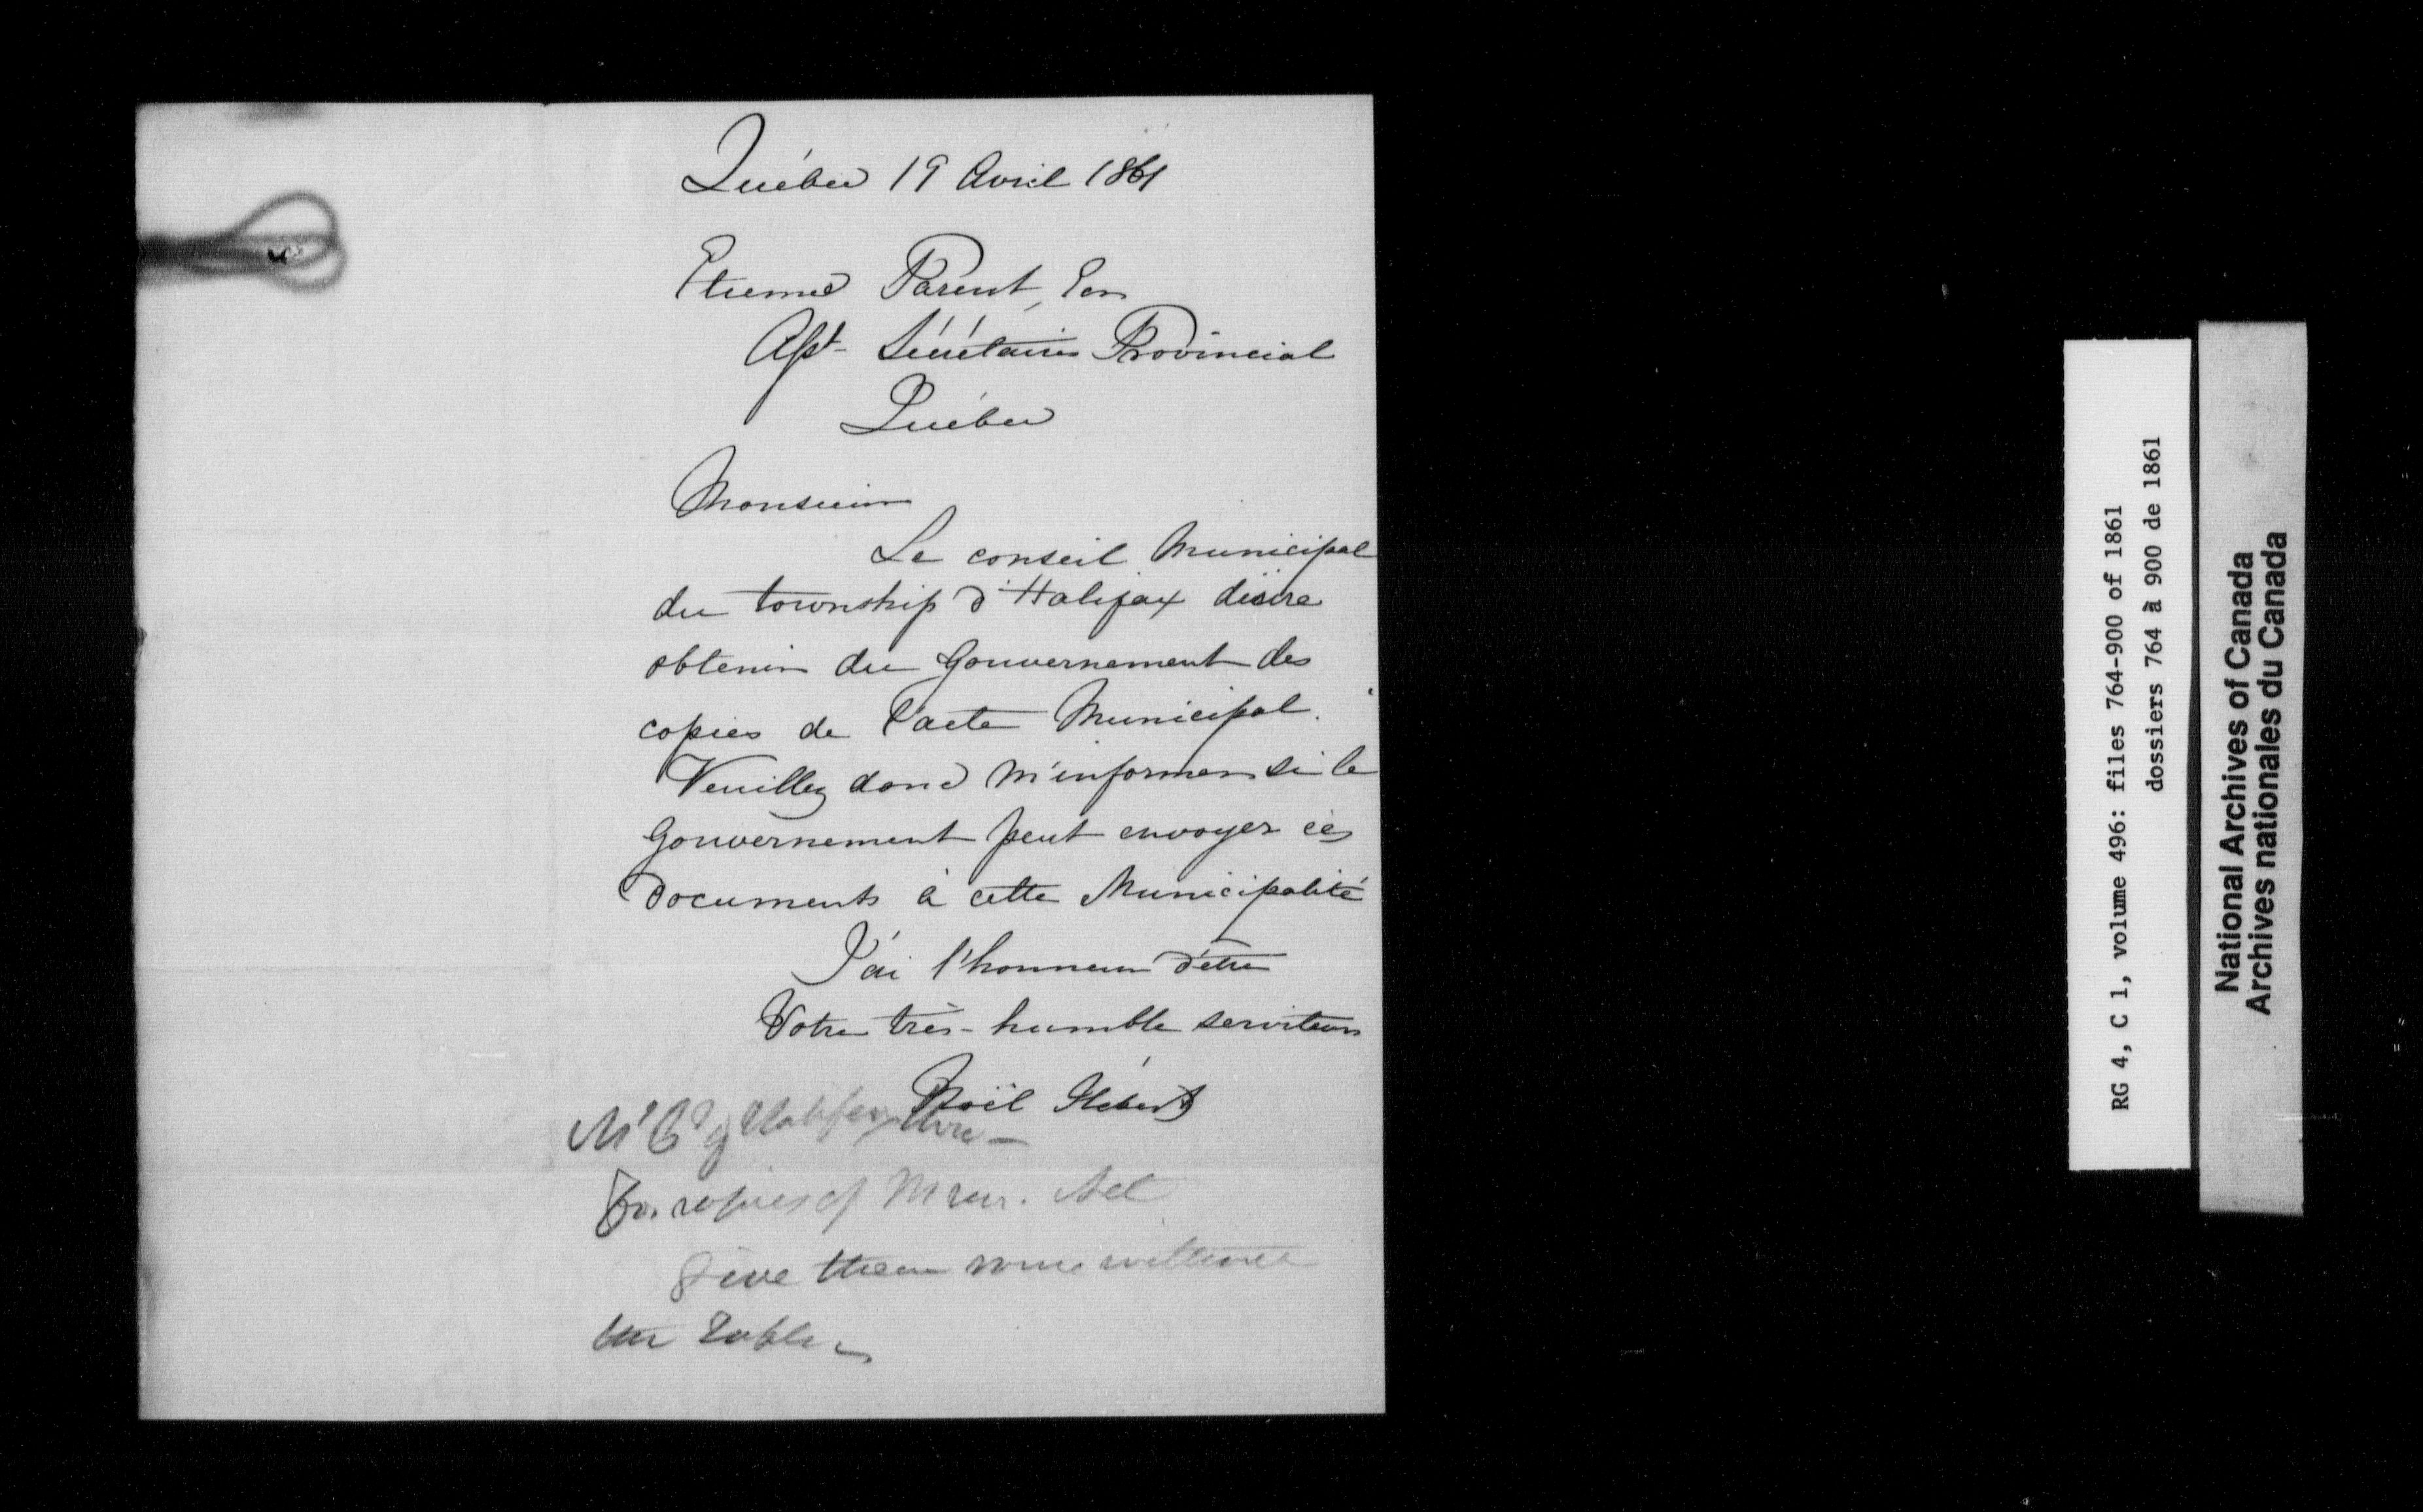 Québec 19 Avril 1861
Etienne Parent, Ecr
Asst- Sécrétaire Provincial
Québec
Monsieur
Le conseil Municipal
du township d'Halifax désire
obtenir du Gouvernement des
copies de l'acte Municipal.
Veuillez donc m'informer si le
Gouvernement peut envoyer ces
documents à cette Municipalité
J'ai l'honneur d'être
Votre très-humble serviteur
Noël Hébert
Halifax
For copies of Mun. Act
Give them some without
the Table
RG 4, C 1, volume 496: files 764-900 of 1861
dossiers 764 à 900 de 1861
National Archives of Canada
Archives nationales du Canada